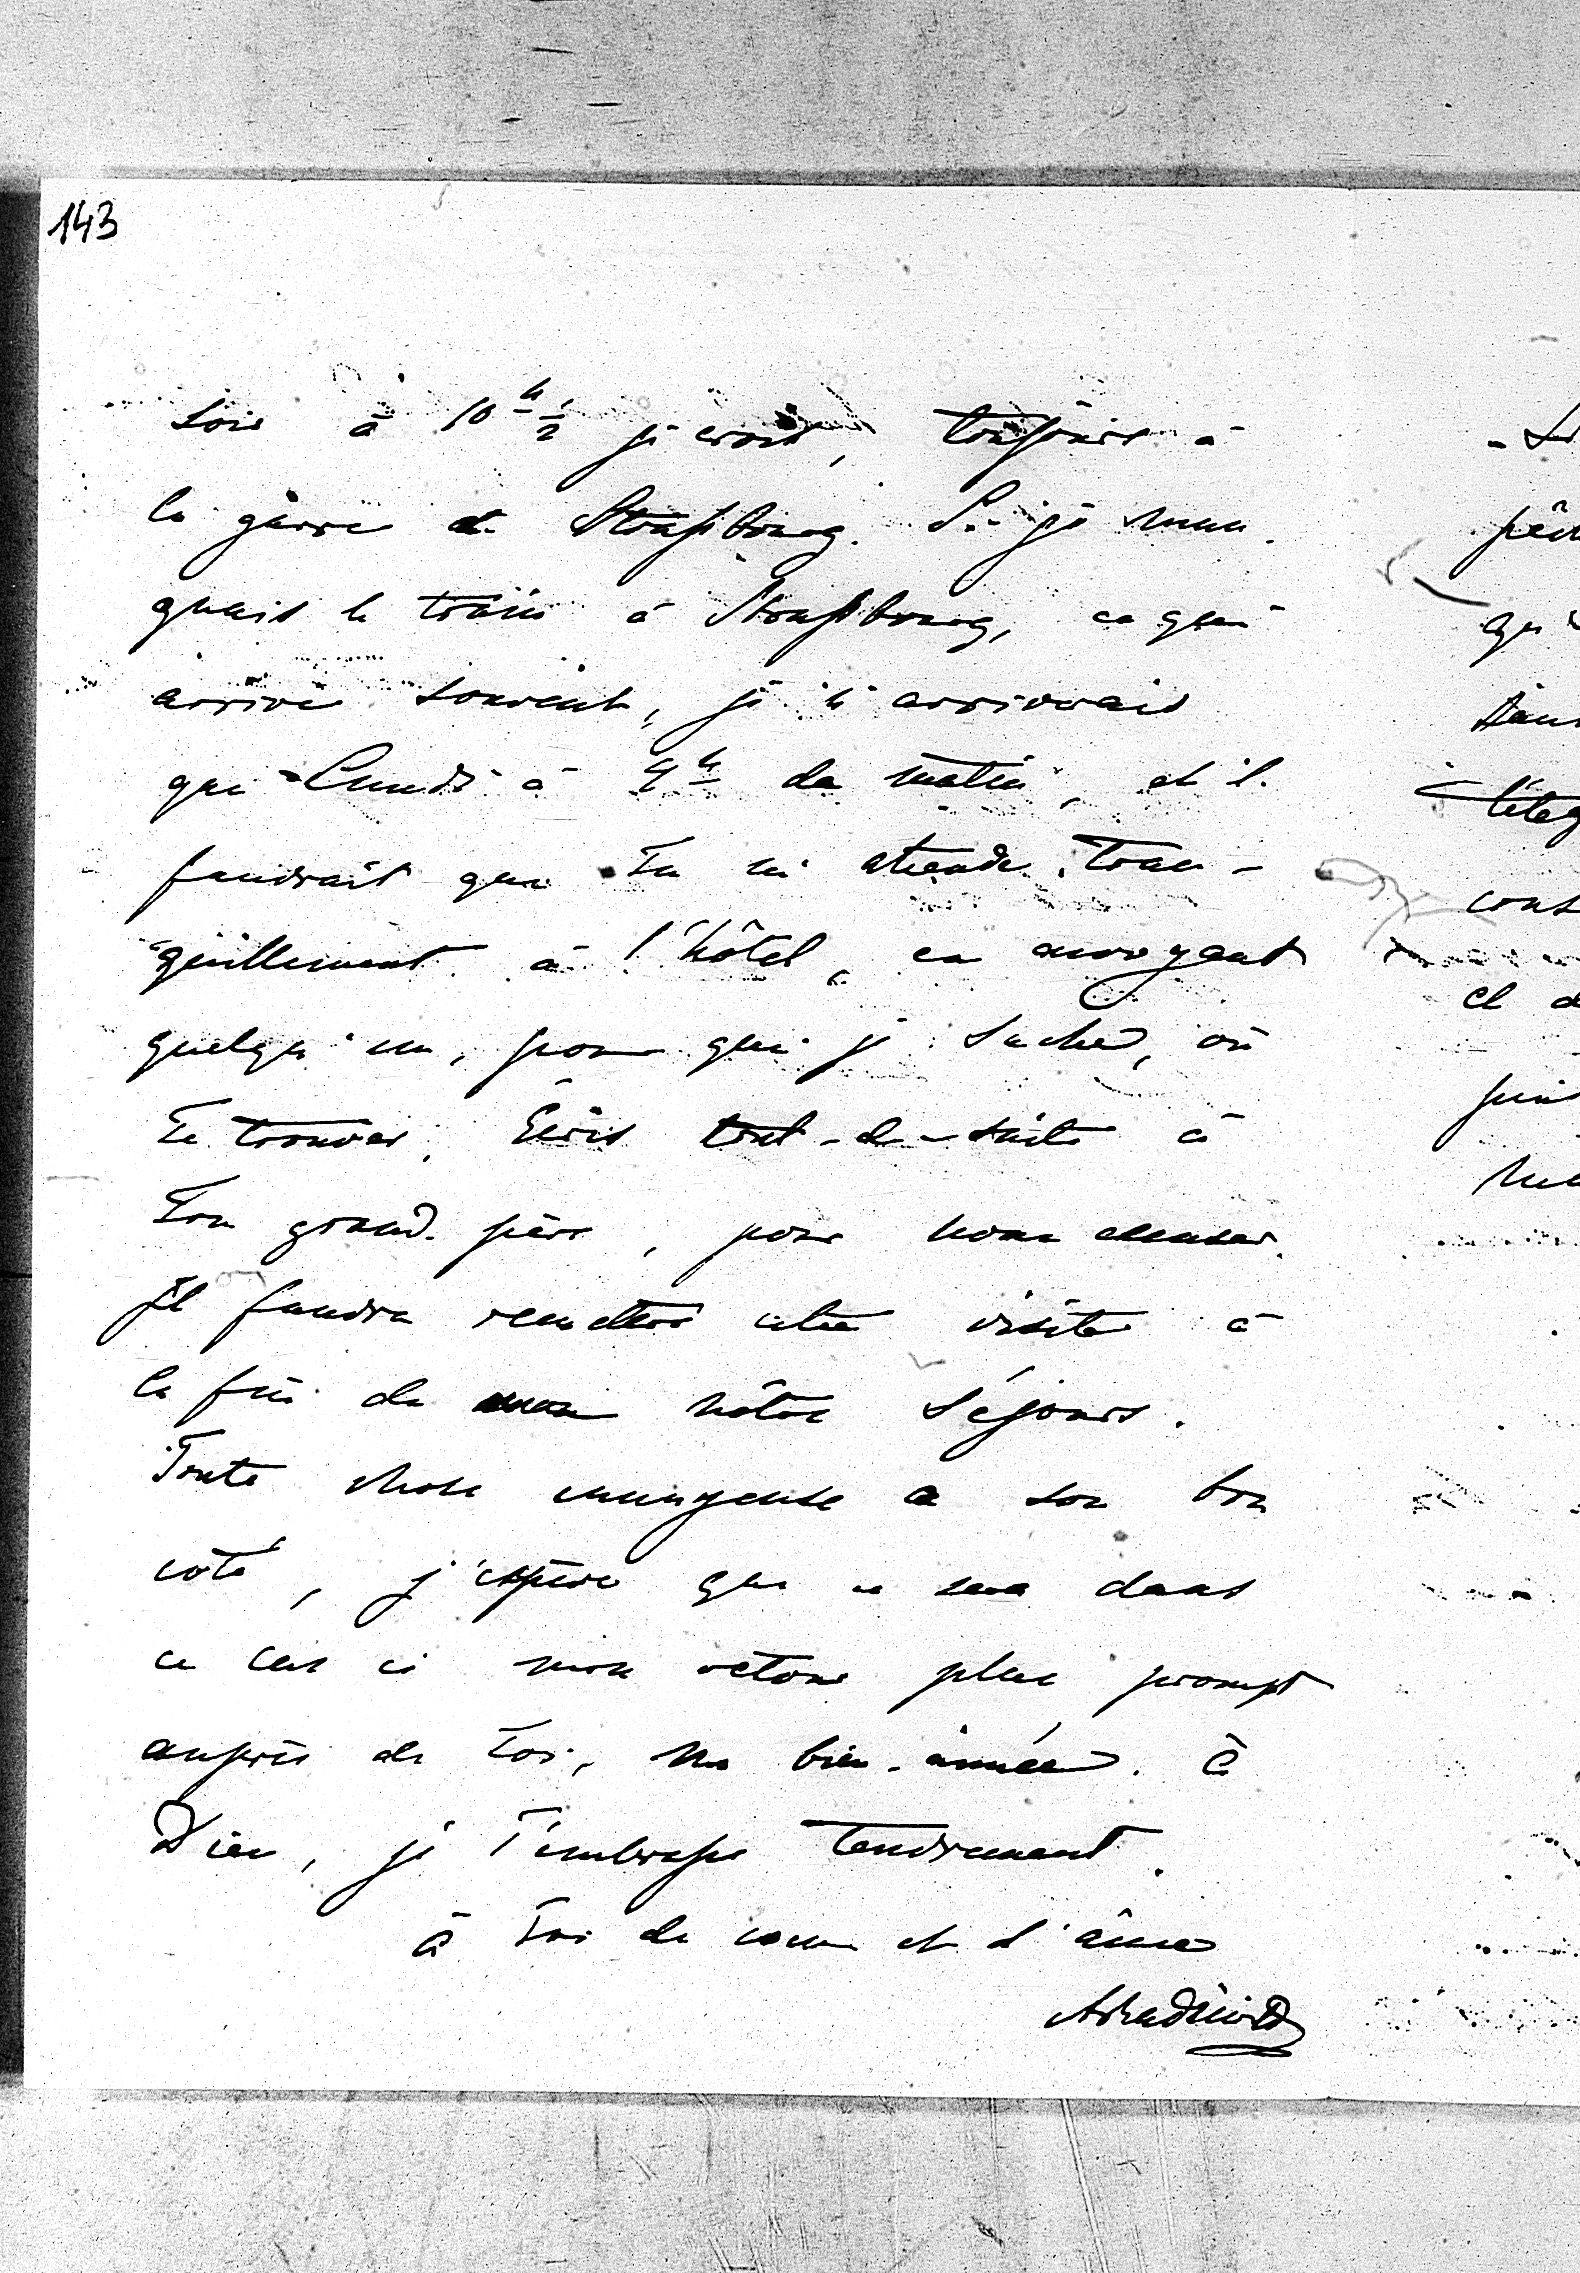 143
soir à 10 h 1/2 je crois, toujours à
la garre de Straßbourg. Si je man-
quais le train à Straßbourg, ce qui
arrive souvent, je n'arriverais
que Lundi à 4 h du matin, et il
faudrait que Tu m'attende tran-
quillement à l'hôtel, en envoyant
quelqu'un, pour que je sache, où
Te trouver. Écris tout-de-suite à
Ton grand-père, pour nous excuser.
Il faudra remettre cette visite à
la fin de notre séjour.
Toute chose ennuyeuse a son bon
côté, j'espère que ce sera dans
ce cas ci mon retour plus prompt
auprès de Toi, ma bien-aimée. à
Dieu, je T'embraße tendrement.
à Toi de coeur et d'âme